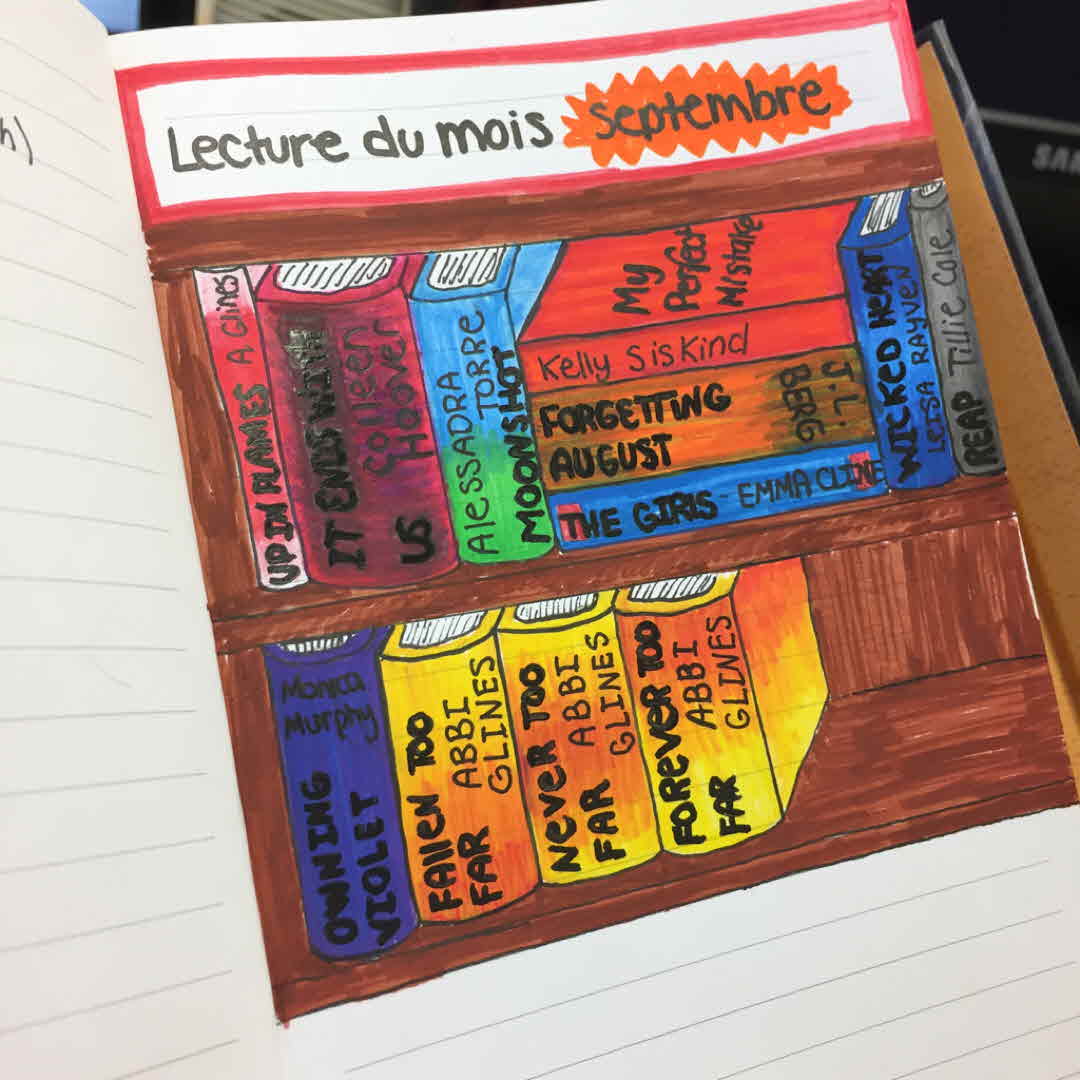 Lecture du mois septembre
UP IN FLAMES A Glines
IT ENDS WITH
US
Colleen
Hoover
Alessadra
Torre
MOONSHOT
My
Perfect
Mistake
Kelly Siskind
FORGETTING
AUGUST
J.L.
BERG
THE GIRLS - EMMA CLINE
WICKED HEART
LEISA RAYVEN
REAP Tillie Cole
Monica
Murphy
OWNING
VIOLET
FALLEN TOO
FAR
ABBI
GLINES
NEVER TOO
FAR
ABBI
GLINES
FOREVER TOO
FAR
ABBI
GLINES
h)